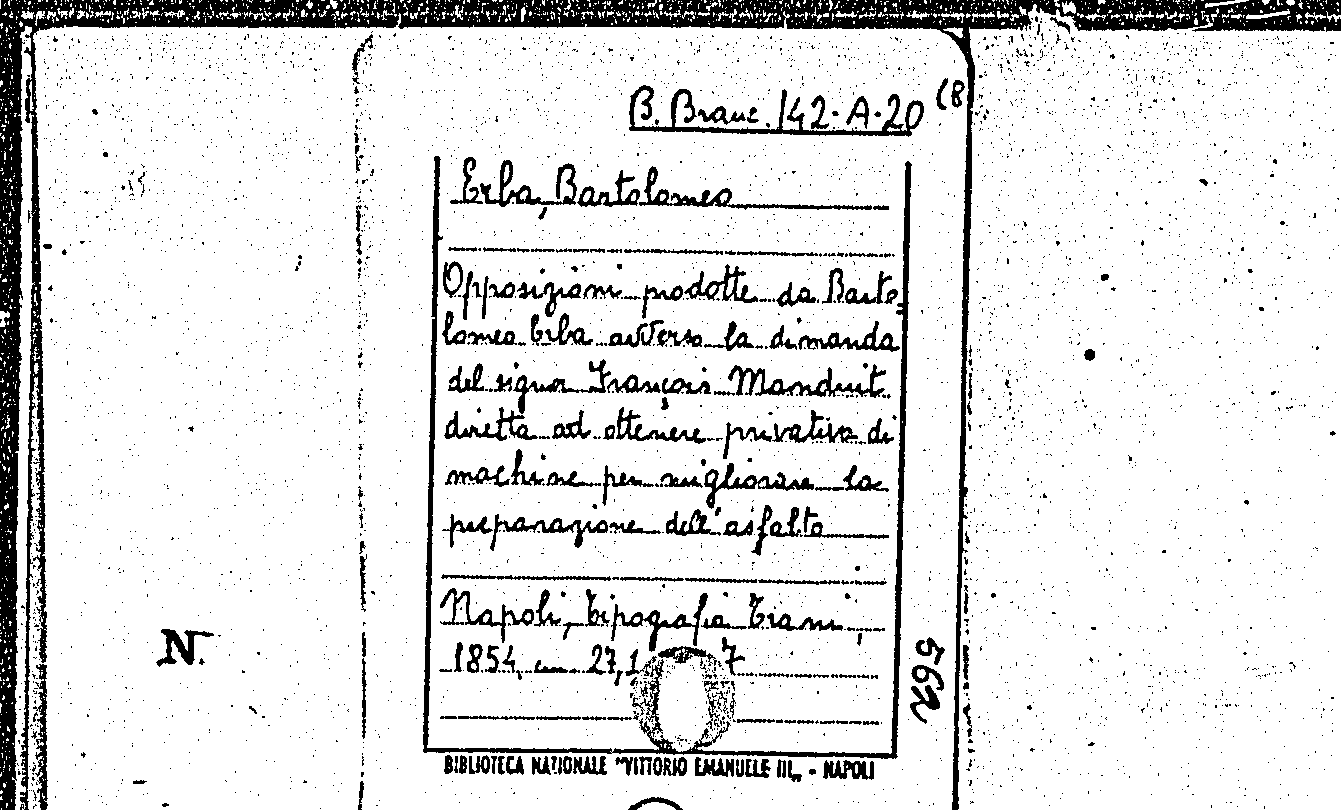 B. Branc. 142-A-20 (8
Erba, Bartolomeo
Opposizioni prodotte da Barto=
lomeo Erba avverso la dimanda
del signor François Manduit
diretta ad ottenere privativa di
machine per migliorare la
preparazione dell'asfalto
Napoli, Tipografia Trani,
1854, cm 27,1 7
562
N.
BIBLIOTECA NAZIONALE "VITTORIO EMANUELE III„ - NAPOLI